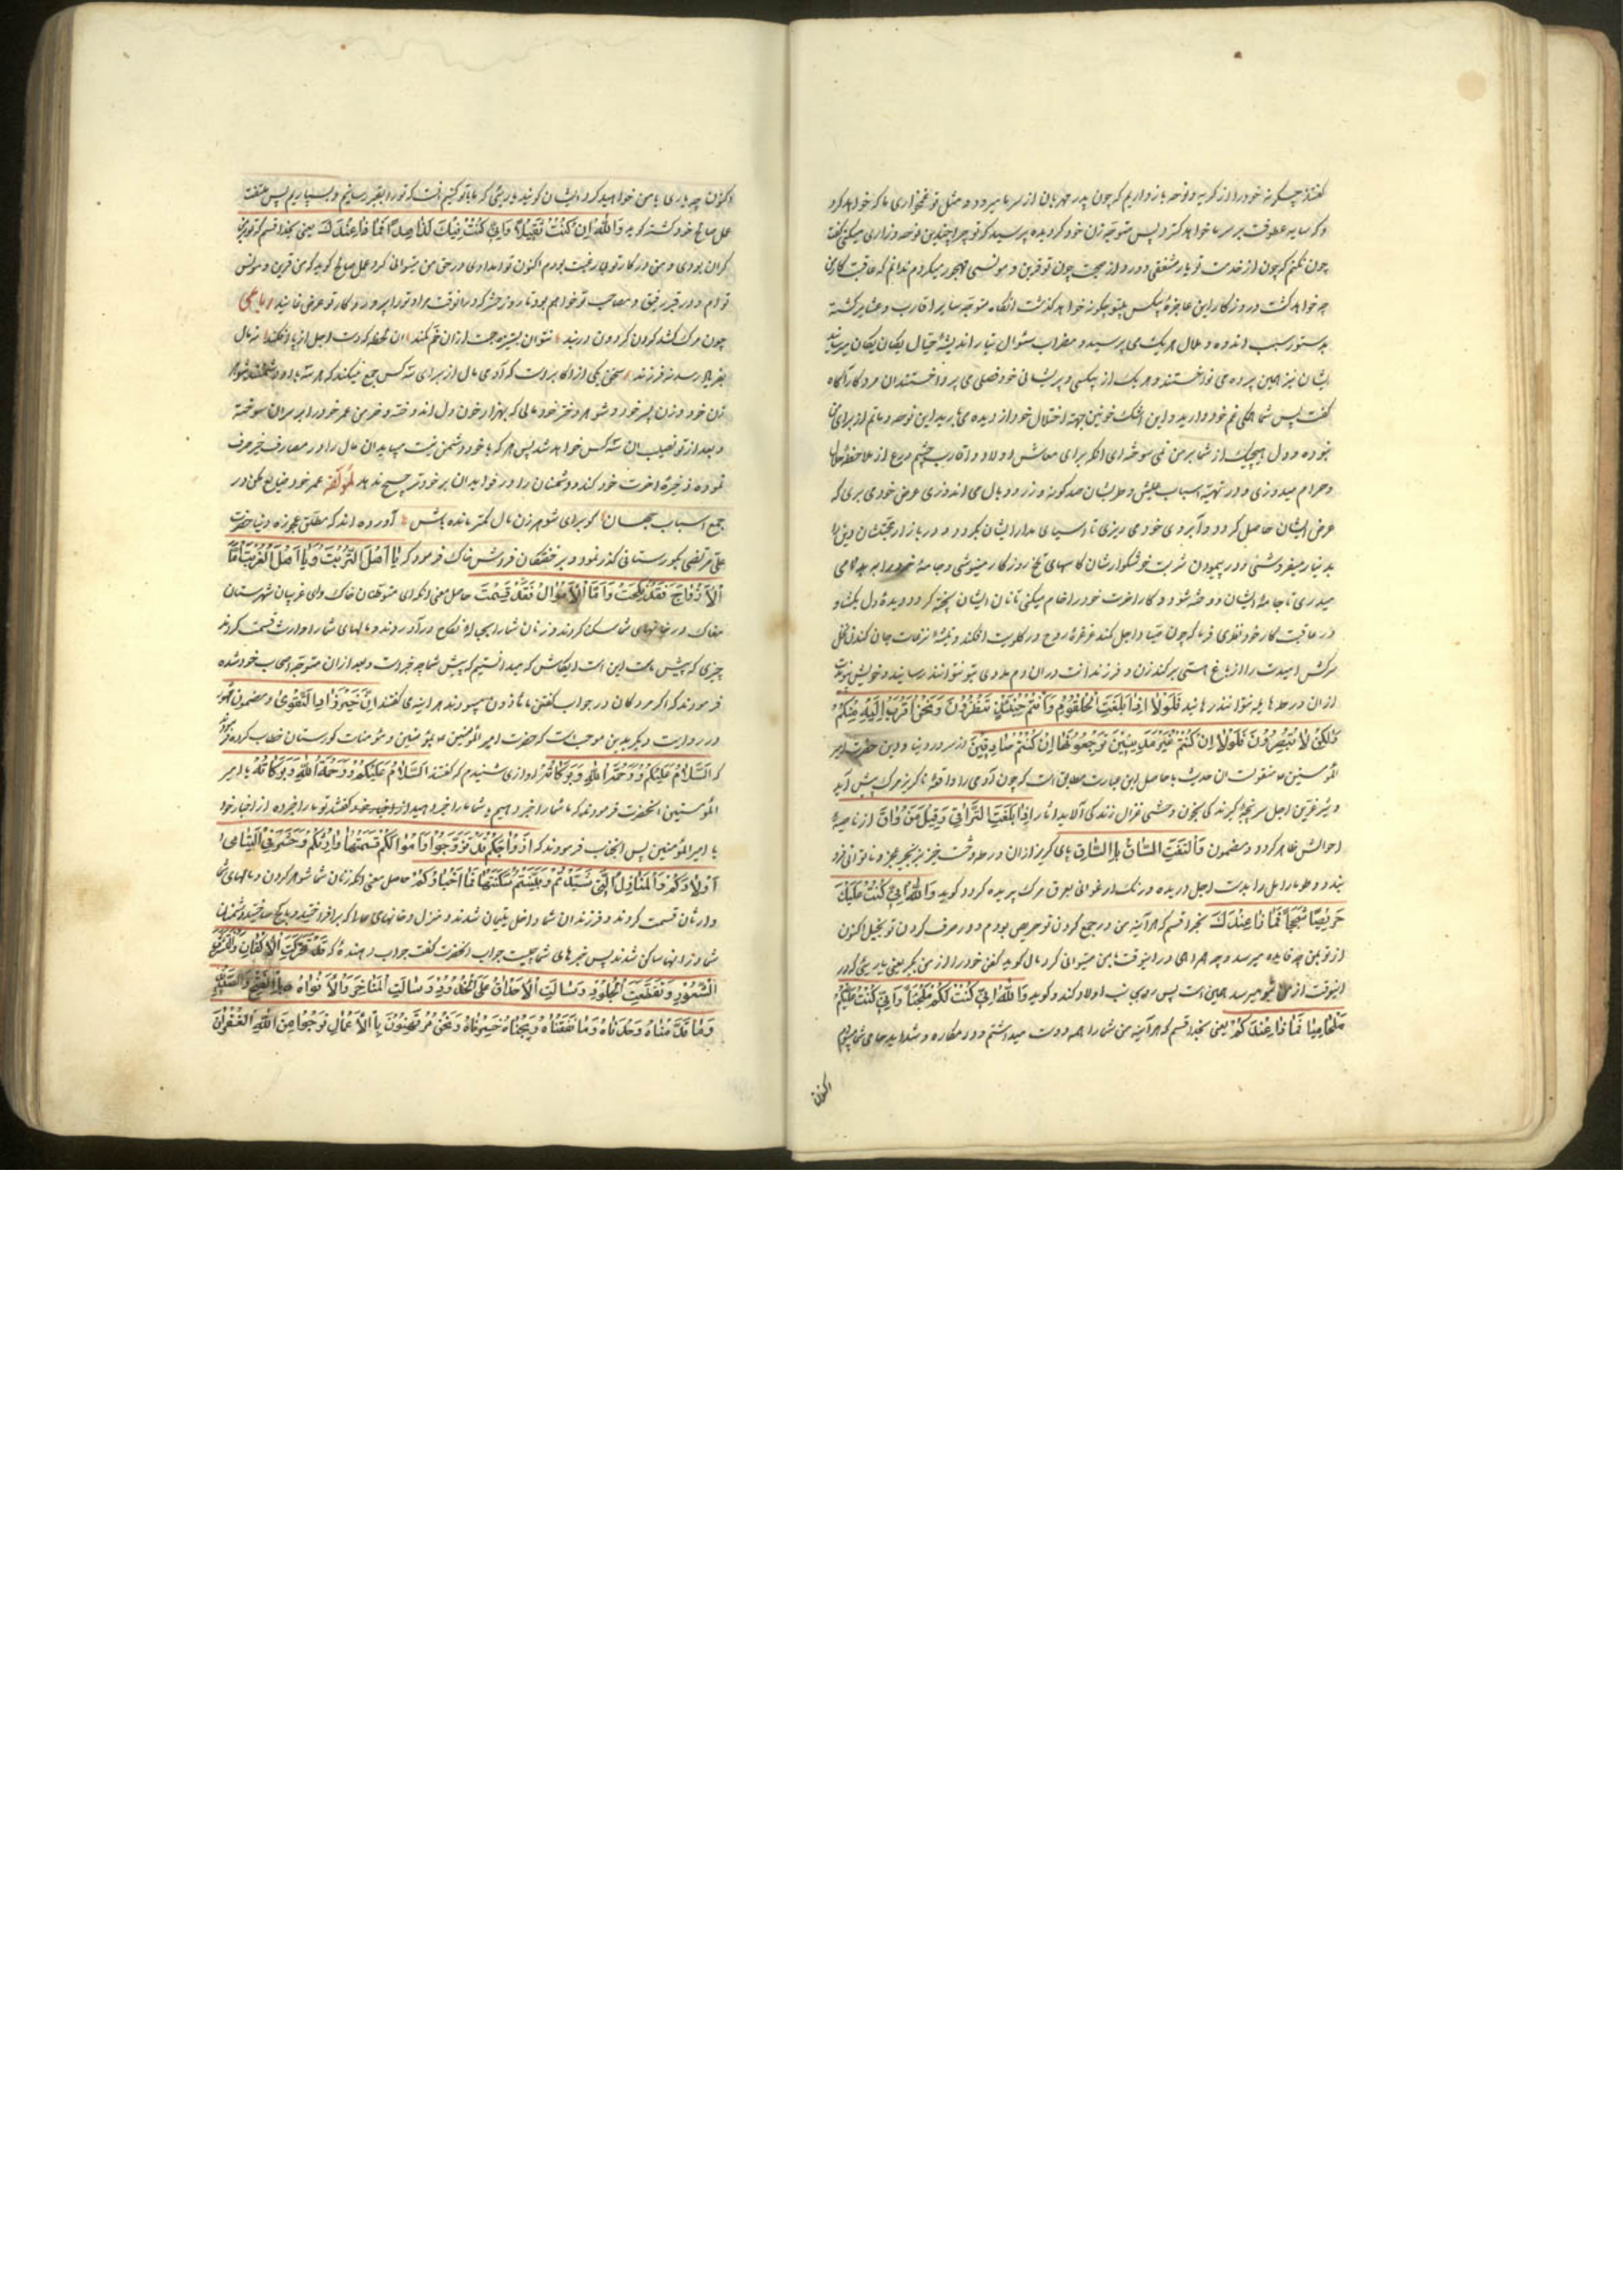 گفتند چگونه خود را از گریه و نوحه باز داریم که چون پدر مهربان از سر ما میرود و مثل تو غمخواری ما که خواهد کرد
و که سایه عطوفت بر سر ما خواهد گسترد پس متوجه زن خود گردیده پرسید که تو چرا چندین نوحه و زاری میکنی گفت
چون نکنم که چون از خدمت تو یار مشفقی دور و از صحبت چون تو قرین و مونسی مهجور میگردم ندانم که عاقبت کار من
چه خواهد گشت و روزگار این عاجزهٔ بیکس بیتو چگونه خواهد گذشت آنگاه متوجه سایر اقارب و عشایر گشته
بدستور سبب اندوه و ملال هر یک می پرسید و مضراب سئوال بتار اندیشهٔ خیال یکان یکان میرسانید
ایشان نیز همین پرده می نواختند و هر یک از بیکسی و پریشانی خود فصلی می پرداختند آن مرد کارآگاه
گفت پس شما همگی غم خود دارید و این اشک خونین بجهة اختلال خود از دیده می بارید این نوحه و ماتم از برای من
نبوده و دل هیچیک از شما بر من نمی سوخته ای آنکه برای معاش اولاد و اقارب چشم ورع از ملاحظهٔ حلال
و حرام میدوزی و در تهیهٔ اسباب عیش و طرب ایشان صد گونه وزر و وبال می اندوزی عرض خود می بری که
عرض ایشان حاصل گردد و آبروی خود می ریزی تا آسیای مدار ایشان بگردد و در بازار محبتشان دین را
بدینار میفروشی و در پیمودن شربت خوشگوارشان کاسهای تلخ روزگار مینوشی و جامهٔ خود را به بدنامی
میدری تا جامهٔ ایشان دوخته شود و کار آخرت خود را خام میکنی تا نان ایشان پخته گردد دیدهٔ دل بگشا و
در عاقبت کار خود نظری فرما که چون صیاد اجل کمند غرغرهٔ روح در گلویت افکند و تیشهٔ نزعات جان کندن نخل
سرکش امیدت را از باغ هستی برکند زن و فرزندانت در آن دم مددی بتو نتوانند رسانید و خویش و پیوند
از آن ورطه هایله نتوانند رهانید فَلَوْلَا إِذَا بَلَغَتِ الْحُلْقُومَ وَأَنْتُمْ حِينَئِذٍ تَنْظُرُونَ وَنَحْنُ أَقْرَبُ إِلَيْهِ مِنْكُمْ
وَلَكِنْ لَا تُبْصِرُونَ فَلَوْلَا إِنْ كُنْتُمْ غَيْرَ مَدِينِينَ تَرْجِعُونَهَا إِنْ كُنْتُمْ صَادِقِينَ از سرور دنیا و دین حضرت امیر
المؤمنین ع منقولست آن حدیث با حاصل این عبارت مطابق است که چون آدمی را واقعهٔ ناگزیر مرگ پیش آید
و شیر عرین اجل سرپنجهٔ گیرندگی بخون وحشی غزال زندگی آلاید آثار إِذَا بَلَغَتِ التَّرَاقِيَ وَقِيلَ مَنْ رَاقٍ از ناصیهٔ
احوالش ظاهر گردد و مضمون وَالْتَفَّتِ السَّاقُ بِالسَّاقِ پای گریز از آن ورطهٔ وحشت خیز بزنجیر عجز و ناتوانی فرو
بندد و طومار امل را بدست اجل دریده و رنگ ارغوانی بعرق مرگ پریده گردد گوید وَاللهِ إِنِّي كُنْتُ عَلَيْكَ
حَرِيصًا شَحِيحًا فَمَا ذَا عِنْدَكَ بخدا قسم که هر آینه من در جمع کردن تو حریص بودم و در صرف کردن تو بخیل اکنون
از تو بمن چه فایده میرسد و چه همراهی در اینوقت با من میتوانی کرد مال گوید کفن خود را از من بگیر یعنی یاریئی که در
اینوقت از من بتو میرسد همین است پس روی بسوی اولاد کند و گوید وَاللهِ إِنِّي كُنْتُ لَكُمْ مُحِبًّا وَإِنِّي كُنْتُ عَلَيْكُمْ
مُحَامِيًا فَمَا ذَا عِنْدَكُمْ یعنی بخدا قسم که هر آینه من شما را همه دوست میداشتم و در مکاره و شداید حامی شما بودم
اکنون
اکنون چه یاری با من خواهید کرد ایشان گویند یاریئی که ما با تو کنیم آنست که تو را بقبر رسانیم و بسپاریم پس ملتفت
عمل صالح خود گشته گوید وَاللهِ إِنْ كُنْتَ ثَقِيلًا وَإِنِّي كُنْتُ فِيكَ لَزَاهِدًا فَمَا ذَا عِنْدَكَ یعنی بخدا قسم که تو بر من
گران بودی و من در کار تو بی رغبت بودم اکنون تو امدادی در حق من میتوانی کرد عمل صالح گوید که من قرین و مونس
تو ام و در قبر رفیق و مصاحب تو خواهم بود تا روز حشر که در آنوقت مرا و تو را بر پروردگار تو عرض نمایند رباعی
چون مرگ کشد گردن گردون در بند نتوان بستیزه جست از آن خم کمند آن لحظه که دست اجل از پا افکند نه مال
بفریاد رسد نه فرزند سخن یکی از اکابر است که آدمی مال از برای سه کس جمع میکند که هر سه با او دشمنند شوهر
زن خود و زن پسر خود و شوهر دختر خود مالی که بهزار خون دل اندوخته و خرمن عمر خود را بر سر آن سوخته
و بعد از تو نصیب آن سه کس خواهد شد پس هر که با خود دشمن نیست میباید آن مال را در مصارف خیر صرف
نموده ذخیرهٔ آخرت خود کند و دشمنان را در فواید آن بر خود ترجیح ندهد لمؤلفه عمر خود ضایع مکن در
جمع اسباب جهان گو برای شوهر زن مال کمتر مانده باش آورده اند که مطلق عجوزه دنیا حضرت
علی مرتضی بگورستانی گذر نمود و بر خفتگان فروش خاک فرمود که يَا أَهْلَ التُّرْبَةِ وَيَا أَهْلَ الْغُرْبَةِ أَمَّا
الْأَزْوَاجُ فَقَدْ نُكِحَتْ وَأَمَّا الْأَمْوَالُ فَقَدْ قُسِمَتْ حاصل معنی آنکه ای متوطنان خاک و ای غریبان شهرستان
مغاک در خانهای شما مسکن کردند و زنان شما را بحبالهٔ نکاح درآوردند و مالهای شما را وارث قسمت کردند
چیزی که پیش ماست این است ایکاش که میدانستیم که پیش شما چه خبر است و بعد از آن متوجه اصحاب خود شده
فرمودند که اگر مردگان در جواب گفتن مأذون میبودند هر آینه می گفتند إِنَّ خَيْرَ الزَّادِ التَّقْوَى و مضمون
در روایت دیگر بدین موجب است که حضرت امیر المؤمنین ع بمؤمنین و مؤمنات گورستان خطاب کرده
که السَّلَامُ عَلَيْكُمْ وَرَحْمَةُ اللهِ وَبَرَكَاتُهُ آوازی شنیدم که گفتند السَّلَامُ عَلَيْكُمْ وَرَحْمَةُ اللهِ وَبَرَكَاتُهُ یا امیر
المؤمنین آنحضرت فرمود که ما شما را خبر دهیم و شما ما را خبر دهید از اخبار خود گفتند تو ما را خبر ده از اخبار خود
یا امیر المؤمنین پس آنجناب فرمودند که أَزْوَاجُكُمْ قَدْ تَزَوَّجُوا وَأَمْوَالُكُمْ قَسَمَتْهَا وُرَّاثُكُمْ وَحُشِرَ فِي الْيَتَامَى
أَوْلَادُكُمْ وَالْمَنَازِلُ الَّتِي شَيَّدْتُمْ وَبَنَيْتُمْ سُكِنَتْهَا فَمَا أَخْبَارُكُمْ حاصل معنی آنکه زنان شما شوهر کردن و مالهای شما
وارثان قسمت کردند و فرزندان شما داخل یتیمان شدند و منزل و خانهای شما را که برافراختید
شما در آنها ساکن شدند پس خبرهای شما چیست جواب آنحضرت گفت جواب دهنده که قَدْ تَخَرَّقَتِ الْأَكْفَانُ وَانْتَثَرَتِ
الشُّعُورُ وَتَقَطَّعَتِ الْجُلُودُ وَسَالَتِ الْأَحْدَاقُ عَلَى الْخُدُودِ وَسَالَتِ الْمَنَاخِرُ وَالْأَفْوَاهُ بِالْقَيْحِ وَالصَّدِيدِ
وَمَا قَدَّمْنَاهُ وَجَدْنَاهُ وَمَا أَنْفَقْنَاهُ رَبِحْنَاهُ خَسِرْنَاهُ وَنَحْنُ مُرْتَهَنُونَ بِالْأَعْمَالِ نَرْجُوا مِنَ اللهِ الْغُفْرَانَ